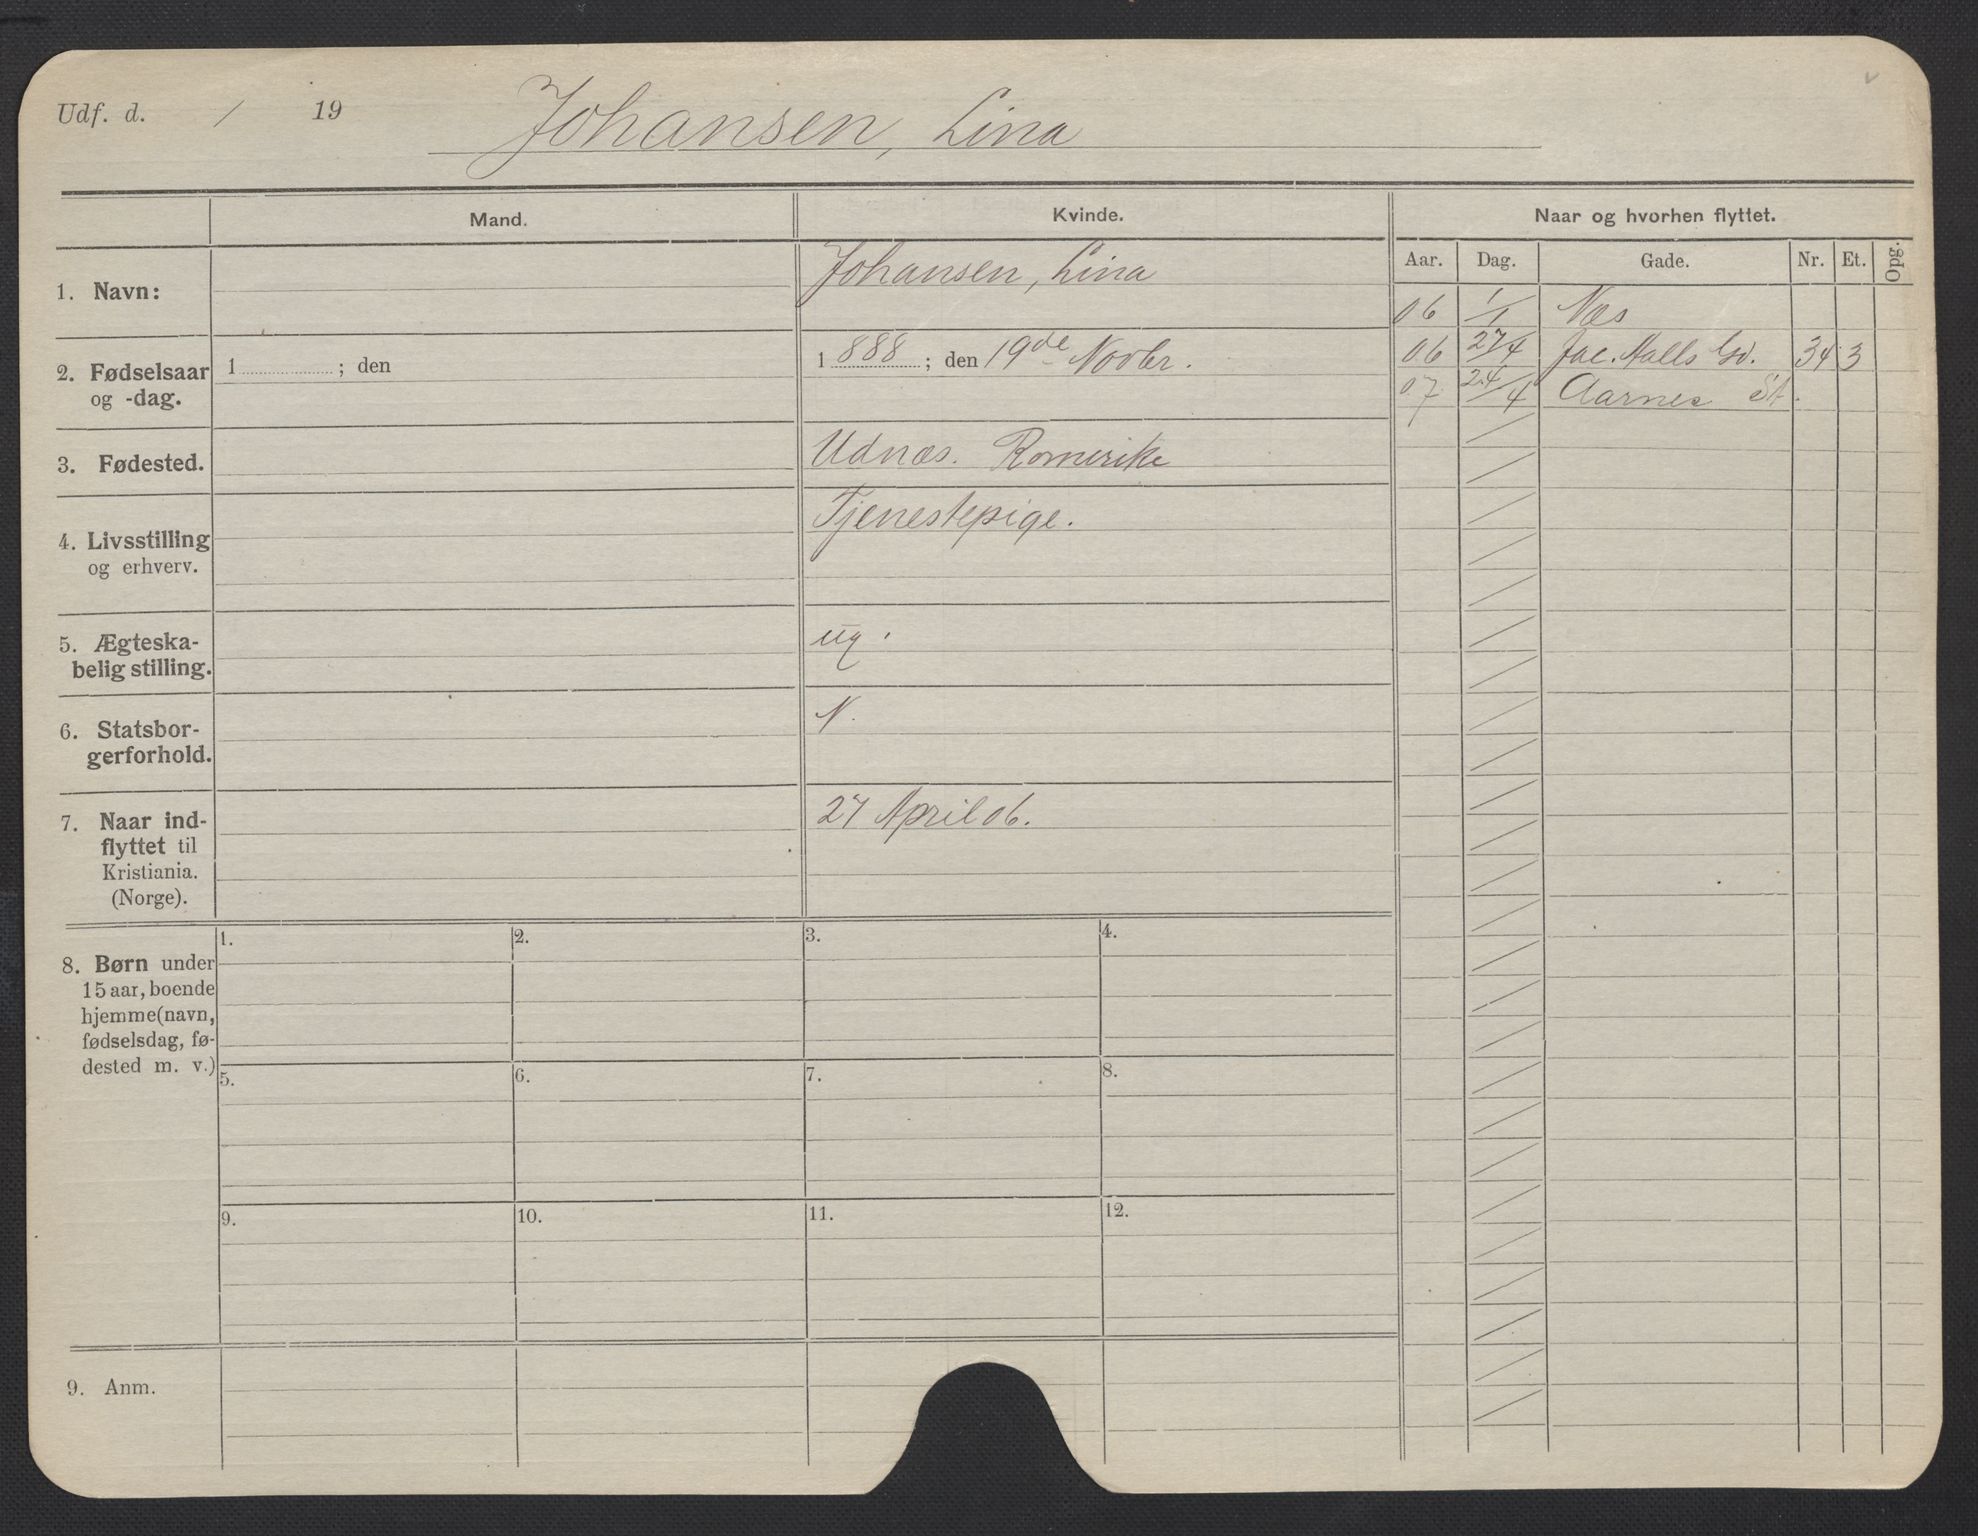 Udf. d. / 19
Johansen, Lina
Mand.
Kvinde.
Naar og hvorhen flyttet.
Aar. Dag. Gade. Nr. Et. Opg.
06 1/1 Næs
06 27/4 Jac. Aalls Gd. 34 3
07 24/4 Aarnes St.
1. Navn:
Johansen, Lina
2. Fødselsaar
og -dag.
1 ; den
1888; den 19de Novbr.
3. Fødested.
Udnæs. Romerike
4. Livsstilling
og erhverv.
Tjenestepige.
5. Ægteska-
belig stilling.
ug.
6. Statsbor-
gerforhold.
N.
7. Naar ind-
flyttet til
Kristiania.
(Norge).
27 April 06.
8. Børn under
15 aar, boende
hjemme (navn,
fødselsdag, fø-
dested m. v.)
1. 2. 3. 4.
5. 6. 7. 8.
9. 10. 11. 12.
9. Anm.